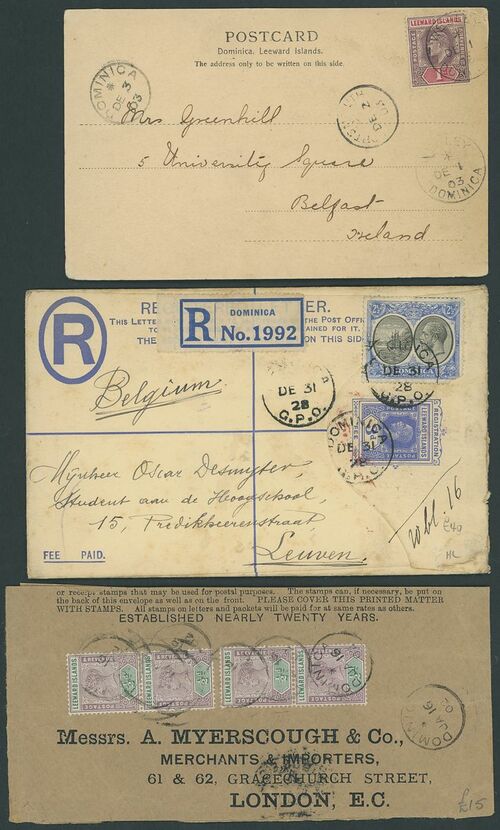 POSTCARD
Dominica. Leeward Islands.
The address only to be written on this side.
LEEWARD ISLANDS
DOMINICA
DE 3
03
DE 2
03
DE 1
03
DOMINICA
Mrs Greenhill
5 University Square
Belfast
Ireland
R
THIS LETTER
THE POST OFFICE
THE
ON THIS SIDE
DOMINICA
R No.1992
DOMINICA
DE 31
28
G.P.O.
DE 31
28
G.P.O.
REGISTRATION
LEEWARD ISLANDS
DOMINICA
DE 31
28
Belgium
Mynheer Oscar Desmyter,
Student aan de Hoogschool,
15, Predikheerenstraat,
Leuven.
FEE PAID.
16
£40
or receipt stamps that may be used for postal purposes. The stamps can, if necessary, be put on
the back of this envelope as well as on the front. PLEASE COVER THIS PRINTED MATTER
WITH STAMPS. All stamps on letters and packets will be paid for at same rates as others.
ESTABLISHED NEARLY TWENTY YEARS.
LEEWARD ISLANDS
LEEWARD ISLANDS
LEEWARD ISLANDS
LEEWARD ISLANDS
DOMINICA
16
Messrs. A. MYERSCOUGH & Co.,
MERCHANTS & IMPORTERS,
61 & 62, GRACECHURCH STREET,
LONDON, E.C.
£15